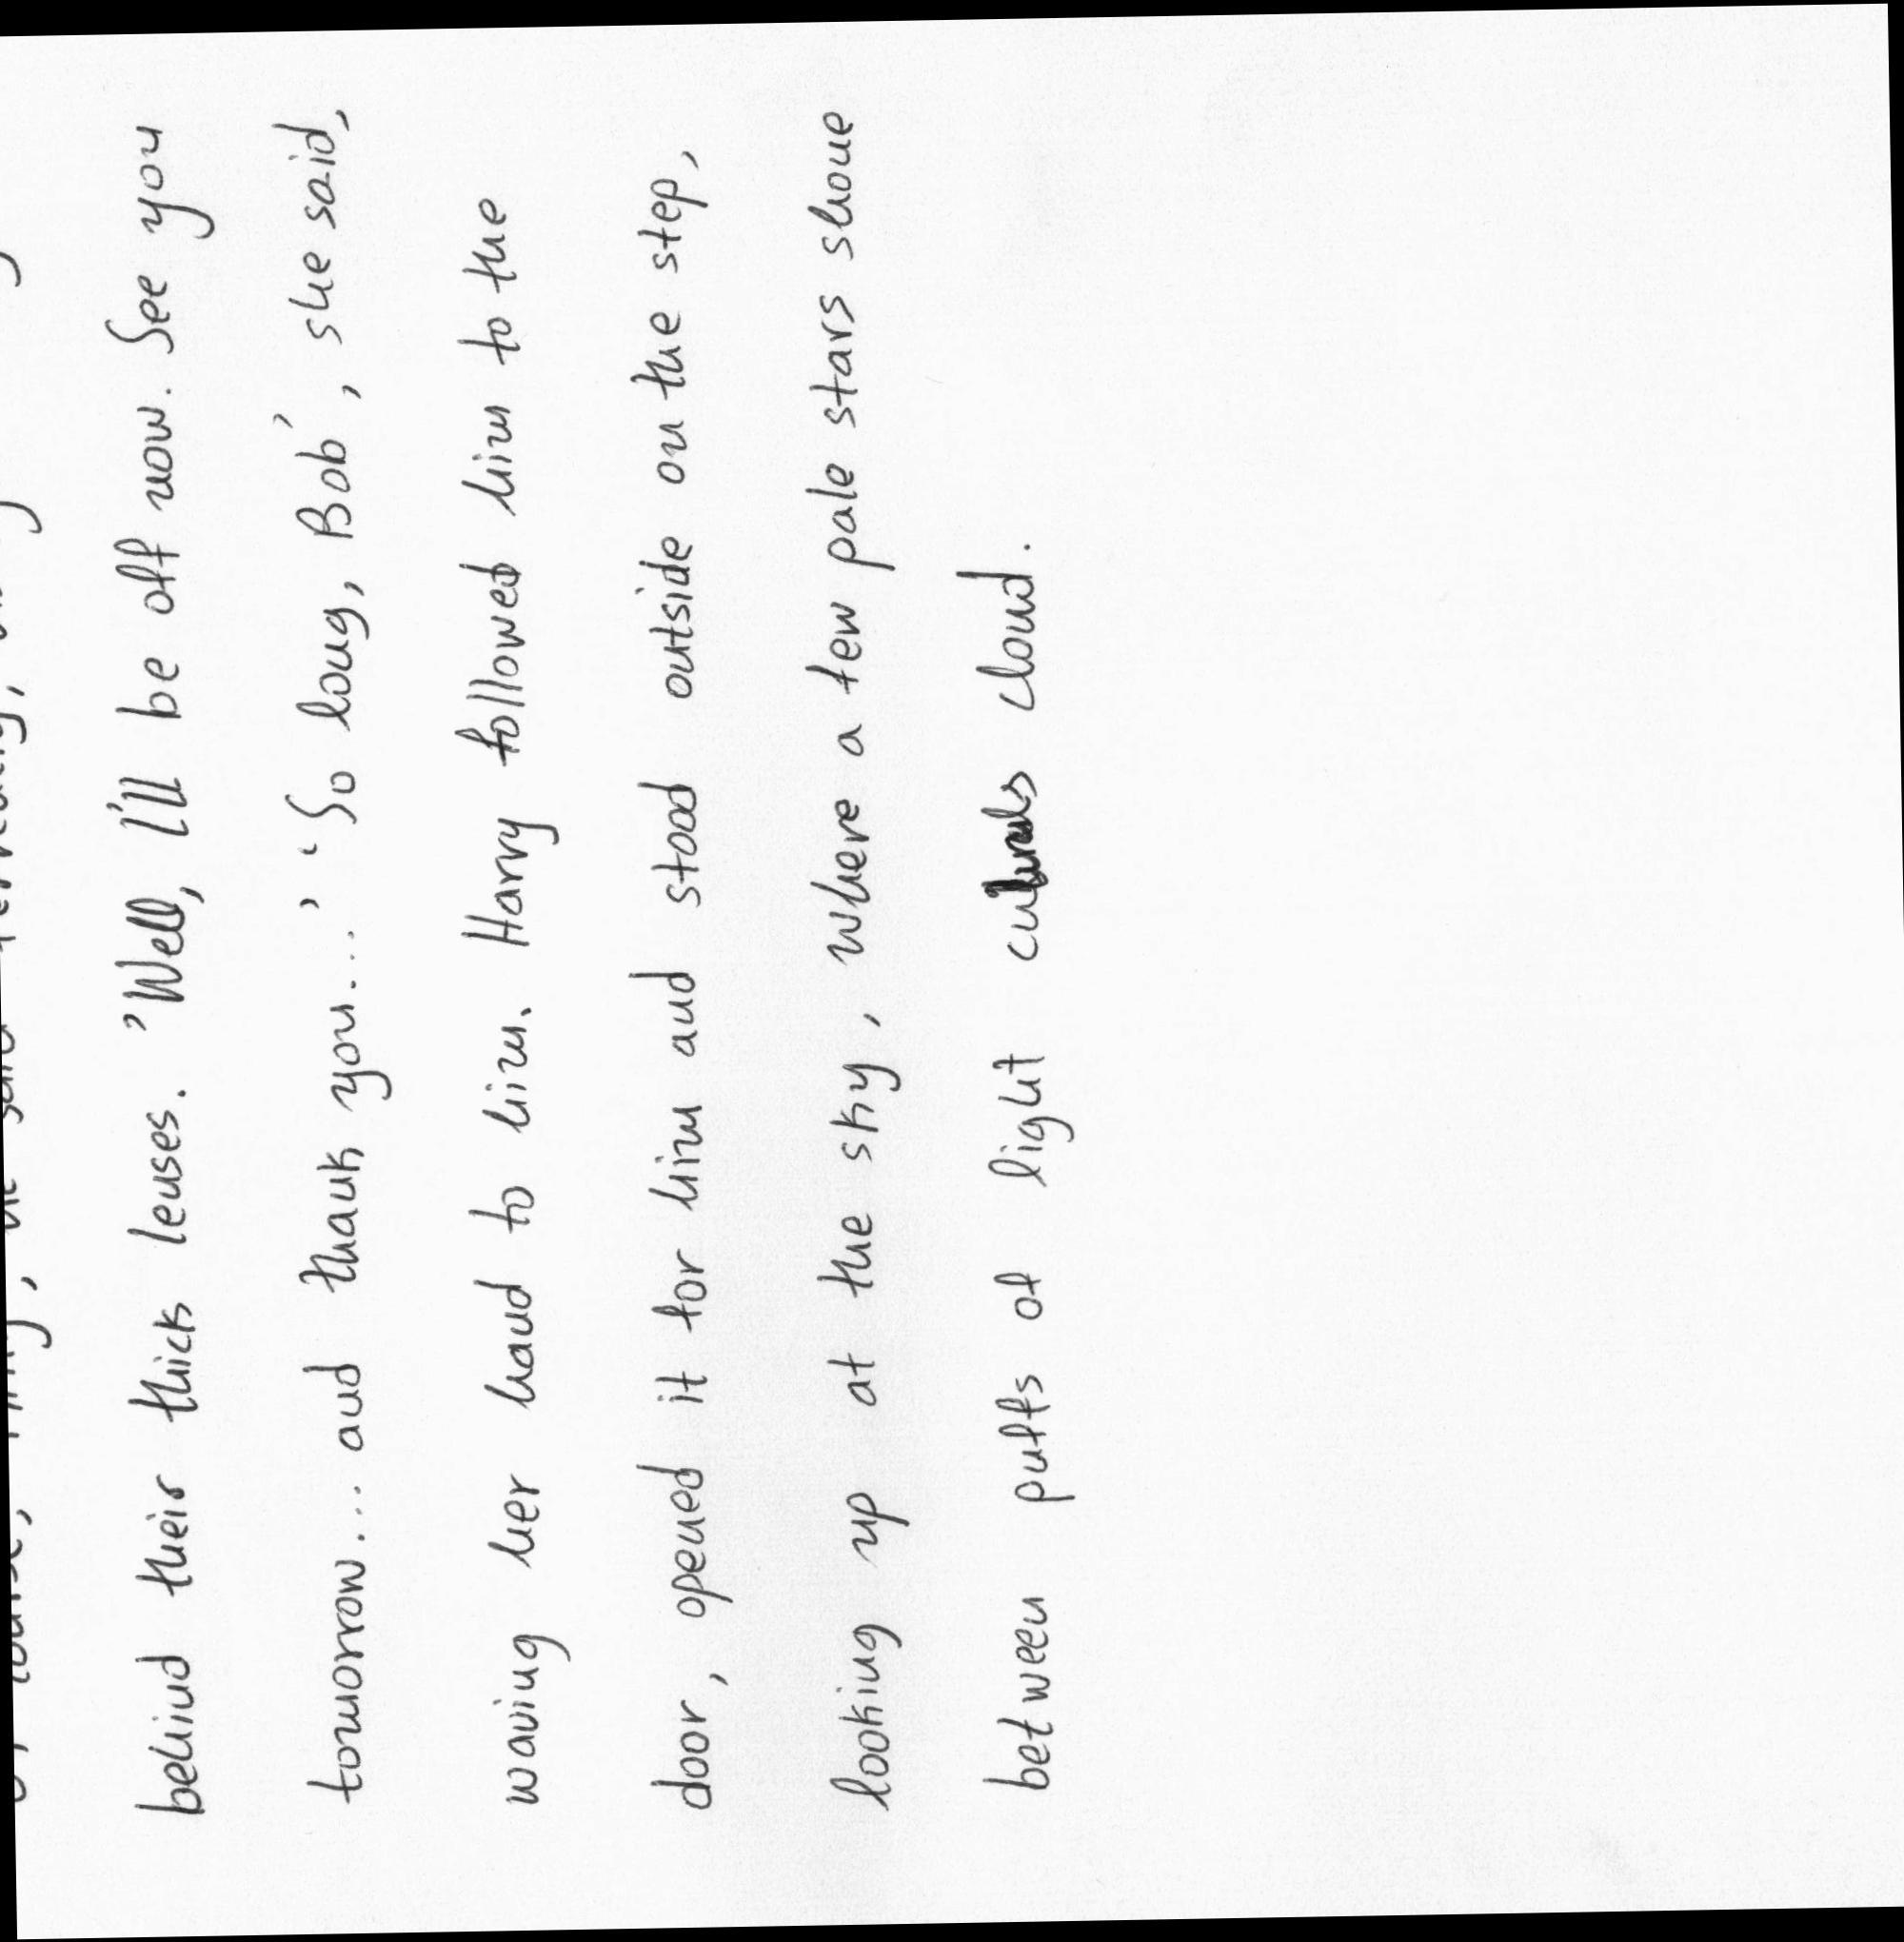 behind their thick lenses. 'Well, I'll be off now. See you
tomorrow... and thank you...' 'So long, Bob', she said,
waving her hand to him. Harry followed him to the
door, opened it for him and stood outside on the step,
looking up at the sky, where a few pale stars shone
between puffs of light cloud.